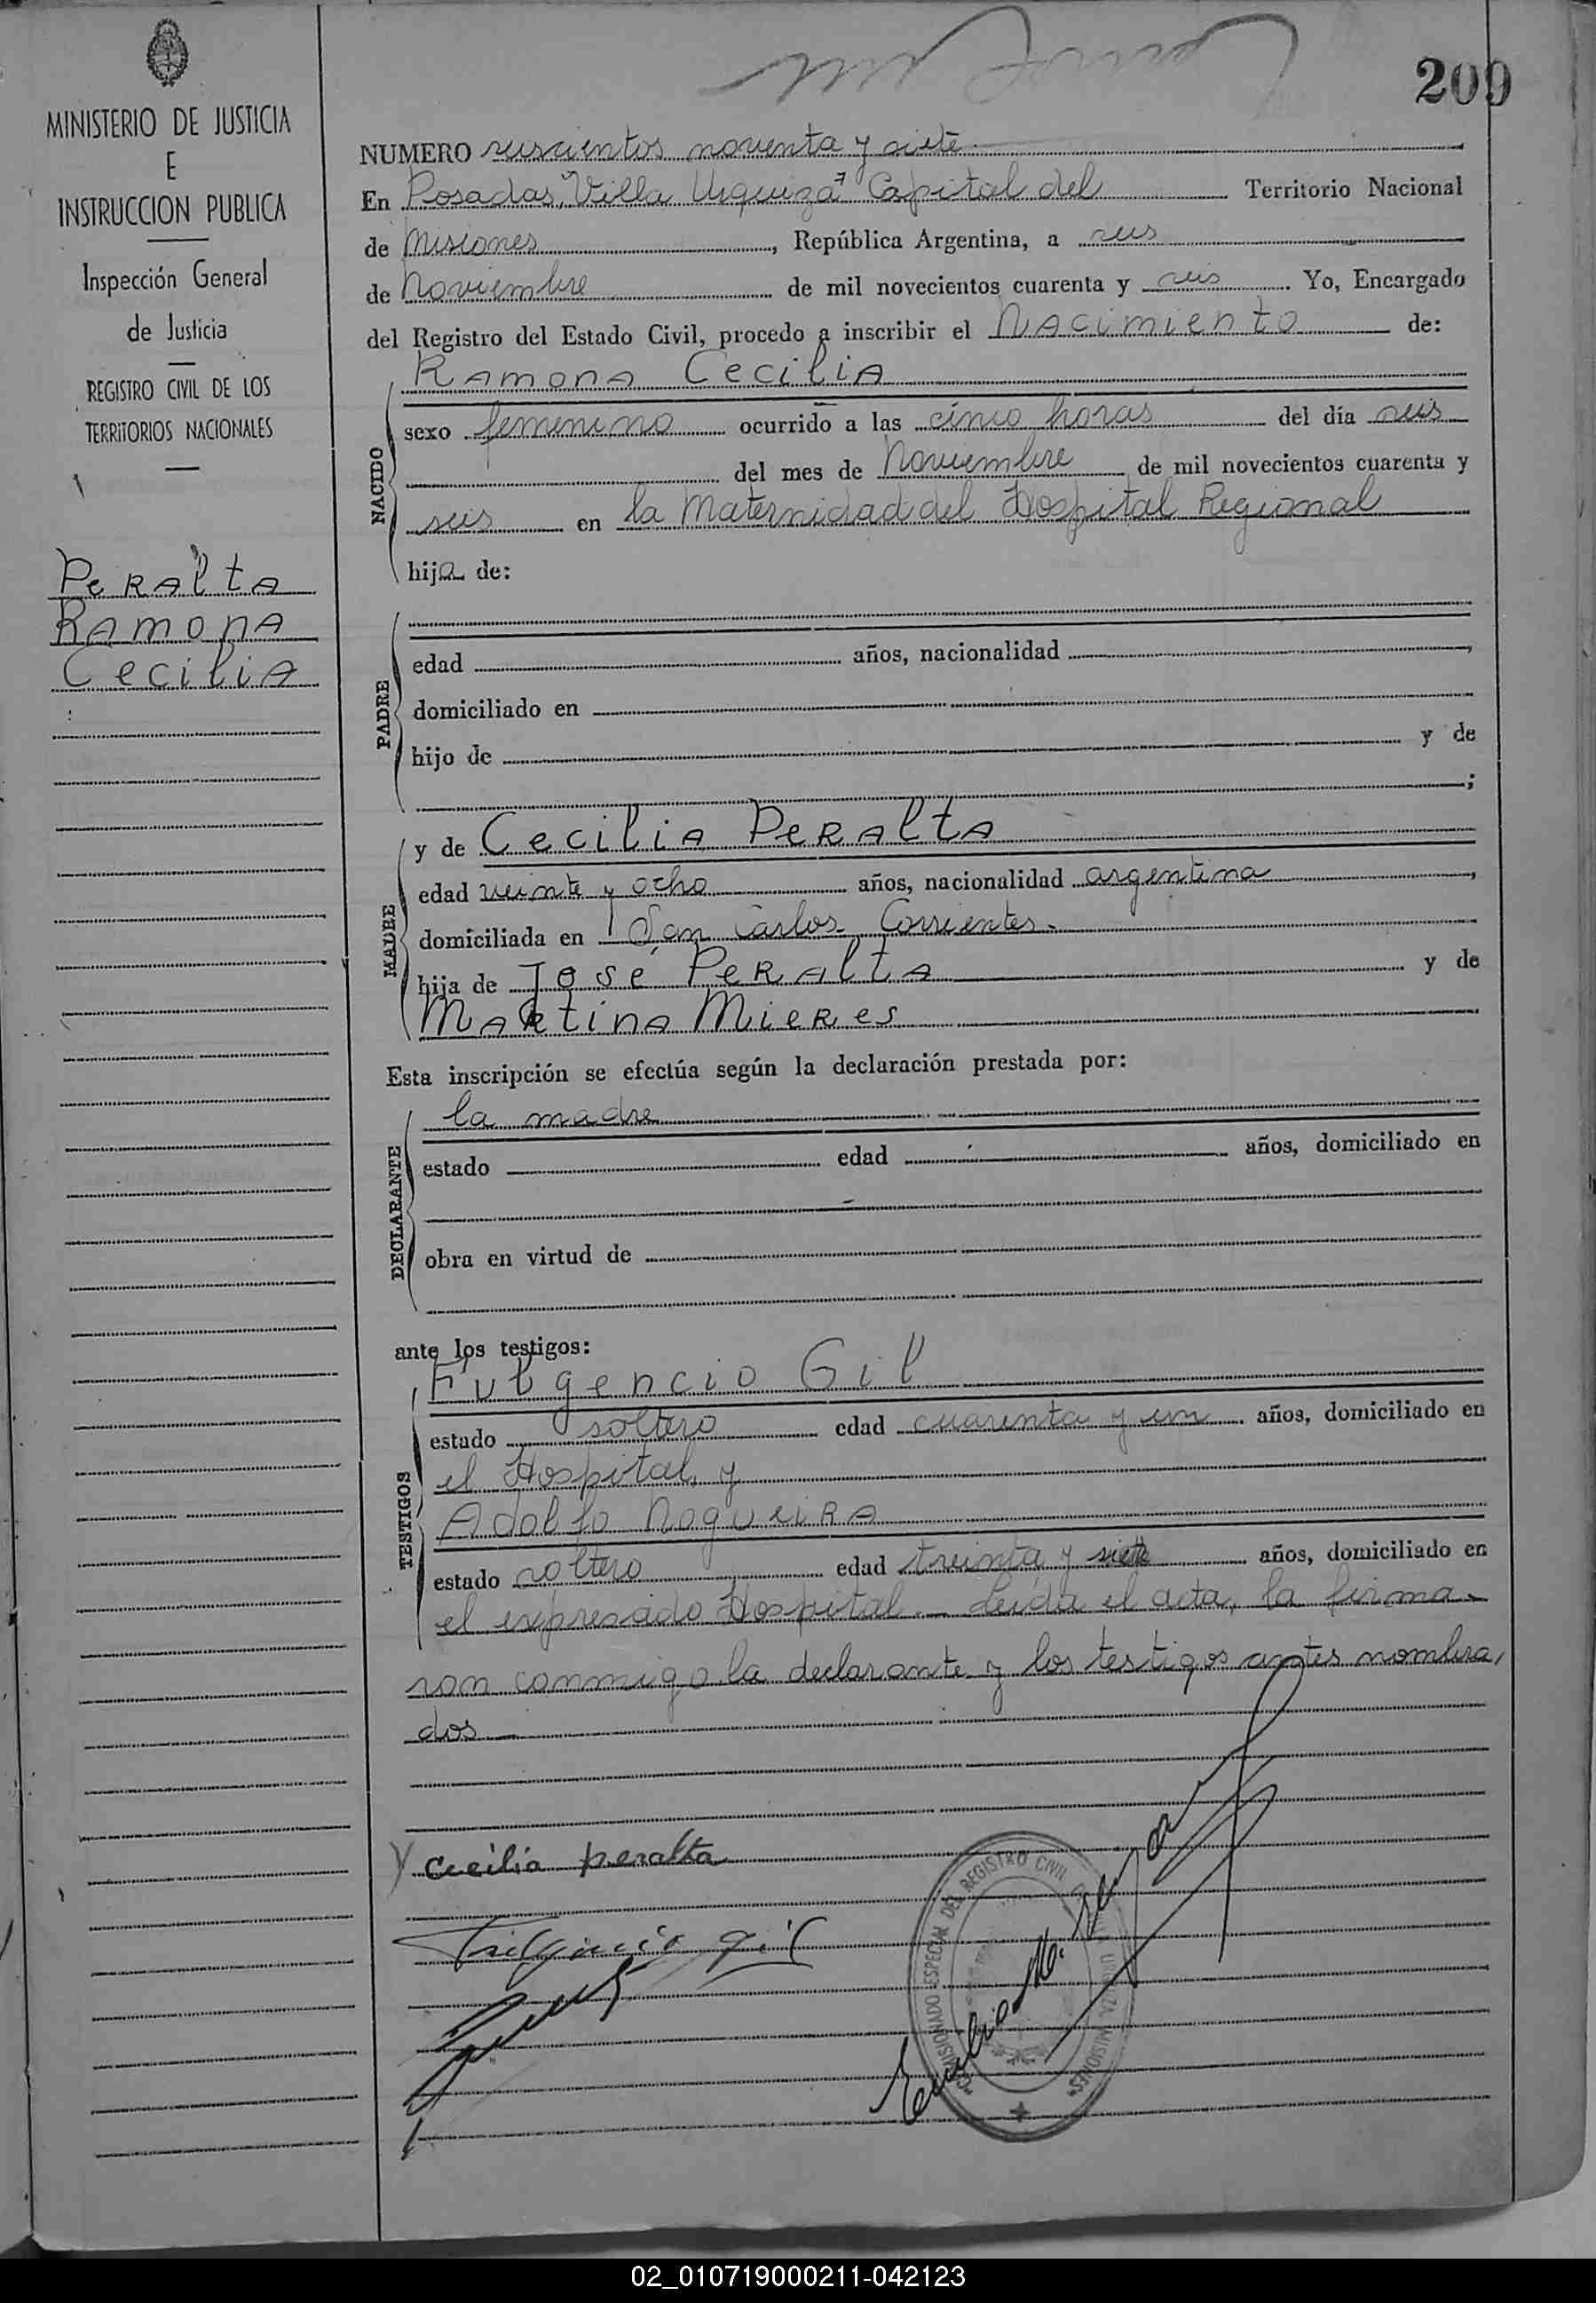 209
MINISTERIO DE JUSTICIA
E
INSTRUCCION PUBLICA
Inspección General
de Justicia
REGISTRO CIVIL DE LOS
TERRITORIOS NACIONALES
Peralta
Ramona
Cecilia
NUMERO seiscientos noventa y siete
En Posadas, "Villa Urquiza" Capital del Territorio Nacional
de Misiones, República Argentina, a seis
de Noviembre de mil novecientos cuarenta y seis. Yo, Encargado
del Registro del Estado Civil, procedo a inscribir el Nacimiento de:
NACIDO
Ramona Cecilia
sexo femenino ocurrido a las cinco horas del día seis
del mes de Noviembre de mil novecientos cuarenta y
seis en la Maternidad del Hospital Regional
hija de:
PADRE
edad años, nacionalidad
domiciliado en
hijo de y de
;
MADRE
y de Cecilia Peralta
edad veinte y ocho años, nacionalidad argentina,
domiciliada en San Carlos - Corrientes.
hija de José Peralta y de
Martina Mieres
Esta inscripción se efectúa según la declaración prestada por:
DECLARANTE
la madre
estado edad años, domiciliado en
obra en virtud de
ante los testigos:
TESTIGOS
Fulgencio Gil
estado soltero edad cuarenta y un años, domiciliado en
el Hospital, y
Adolfo Nogueira
estado soltero edad treinta y siete años, domiciliado en
el expresado Hospital. Leída el acta, la firma-
ron conmigo la declarante y los testigos antes nombra,
dos
Cecilia peralta
Fulgencio Gil
COMISIONADO ESPECIAL DEL REGISTRO CIVIL URQUIZA MISIONES
02_010719000211-042123